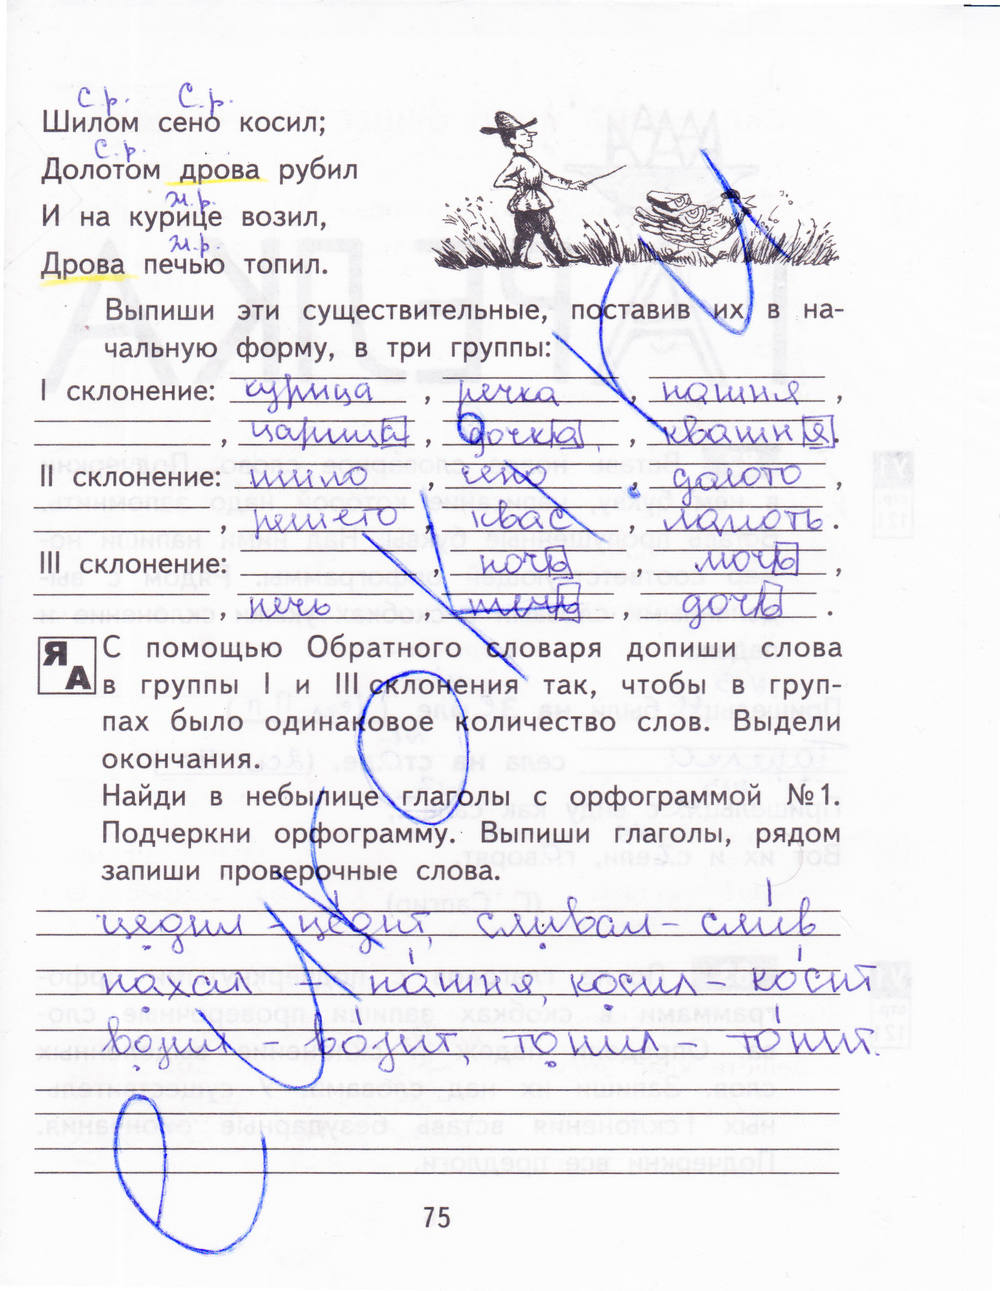 с.р. с.р.
Шилом сено косил;
с.р.
Долотом дрова рубил
ж.р.
И на курице возил,
ж.р.
Дрова печью топил.
Выпиши эти существительные, поставив их в на-
чальную форму, в три группы:
I склонение: курица, речка, пашня,
, царица, дочка, квашня.
II склонение: шило, сено, долото,
, решето, квас, лапоть.
III склонение: , ночь, мочь,
печь, течь, дочь.
Я А
С помощью Обратного словаря допиши слова
в группы I и III склонения так, чтобы в груп-
пах было одинаковое количество слов. Выдели
окончания.
Найди в небылице глаголы с орфограммой №1.
Подчеркни орфограмму. Выпиши глаголы, рядом
запиши проверочные слова.
цедил - цедит, сливал - слив
пахал - пашня, косил - косит
возил - возит, топил - топит.
75